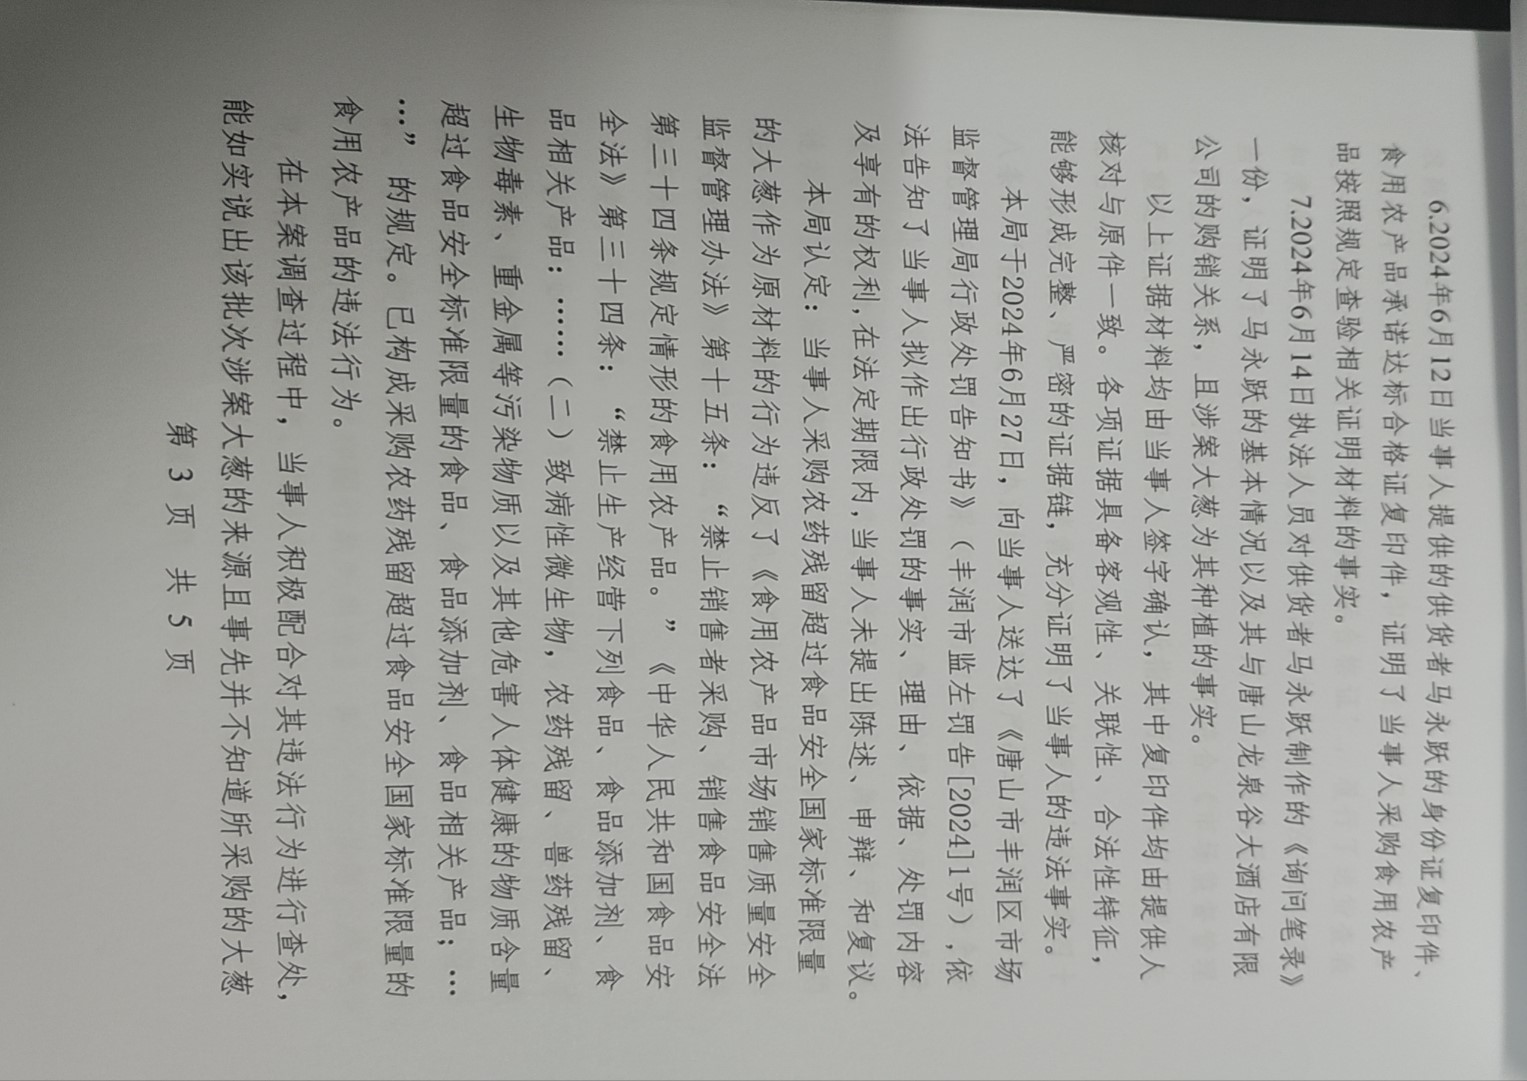 6.2024年6月12日当事人提供的供货者马永跃的身份证复印件、
食用农产品承诺达标合格证复印件，证明了当事人采购食用农产
品按照规定查验相关证明材料的事实。
7.2024年6月14日执法人员对供货者马永跃制作的《询问笔录》
一份，证明了马永跃的基本情况以及其与唐山龙泉谷大酒店有限
公司的购销关系，且涉案大葱为其种植的事实。
以上证据材料均由当事人签字确认，其中复印件均由提供人
核对与原件一致。各项证据具备客观性、关联性、合法性特征，
能够形成完整、严密的证据链，充分证明了当事人的违法事实。
本局于2024年6月27日，向当事人送达了《唐山市丰润区市场
监督管理局行政处罚告知书》（丰润市监左罚告[2024]1号），依
法告知了当事人拟作出行政处罚的事实、理由、依据、处罚内容
及享有的权利，在法定期限内，当事人未提出陈述、申辩、和复议。
本局认定：当事人采购农药残留超过食品安全国家标准限量
的大葱作为原材料的行为违反了《食用农产品市场销售质量安全
监督管理办法》第十五条：“禁止销售者采购、销售食品安全法
第三十四条规定情形的食用农产品。”《中华人民共和国食品安
全法》第三十四条：“禁止生产经营下列食品、食品添加剂、食
品相关产品：……（二）致病性微生物，农药残留、兽药残留、
生物毒素、重金属等污染物质以及其他危害人体健康的物质含量
超过食品安全标准限量的食品、食品添加剂、食品相关产品；…
…”的规定。已构成采购农药残留超过食品安全国家标准限量的
食用农产品的违法行为。
在本案调查过程中，当事人积极配合对其违法行为进行查处，
能如实说出该批次涉案大葱的来源且事先并不知道所采购的大葱
第 3 页 共 5 页